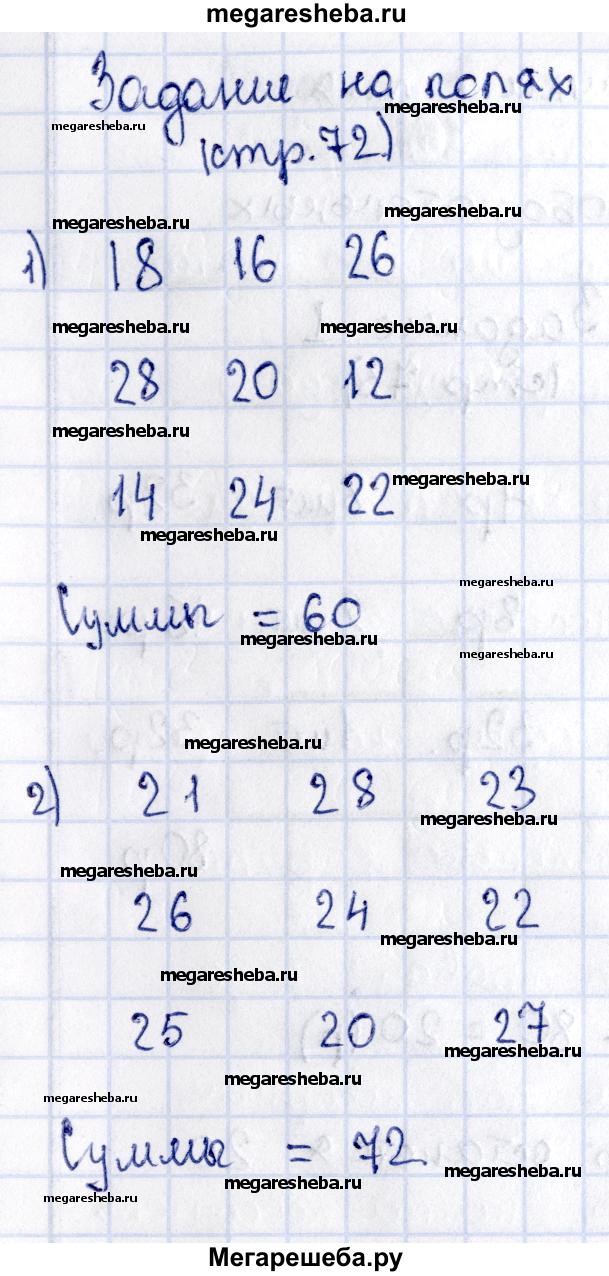 megaresheba.ru
Задание на полях
megaresheba.ru
megaresheba.ru
(стр. 72)
megaresheba.ru
megaresheba.ru
1) 18 16 26
megaresheba.ru megaresheba.ru
28 20 12
megaresheba.ru
megaresheba.ru
14 24 22
megaresheba.ru
megaresheba.ru
Суммы = 60
megaresheba.ru
megaresheba.ru
megaresheba.ru
2) 21 28 23
megaresheba.ru
megaresheba.ru
26 24 22
megaresheba.ru
megaresheba.ru
25 20 27
megaresheba.ru
megaresheba.ru
megaresheba.ru
Суммы = 72
megaresheba.ru
megaresheba.ru
megaresheba.ru
Мегарешеба.ру